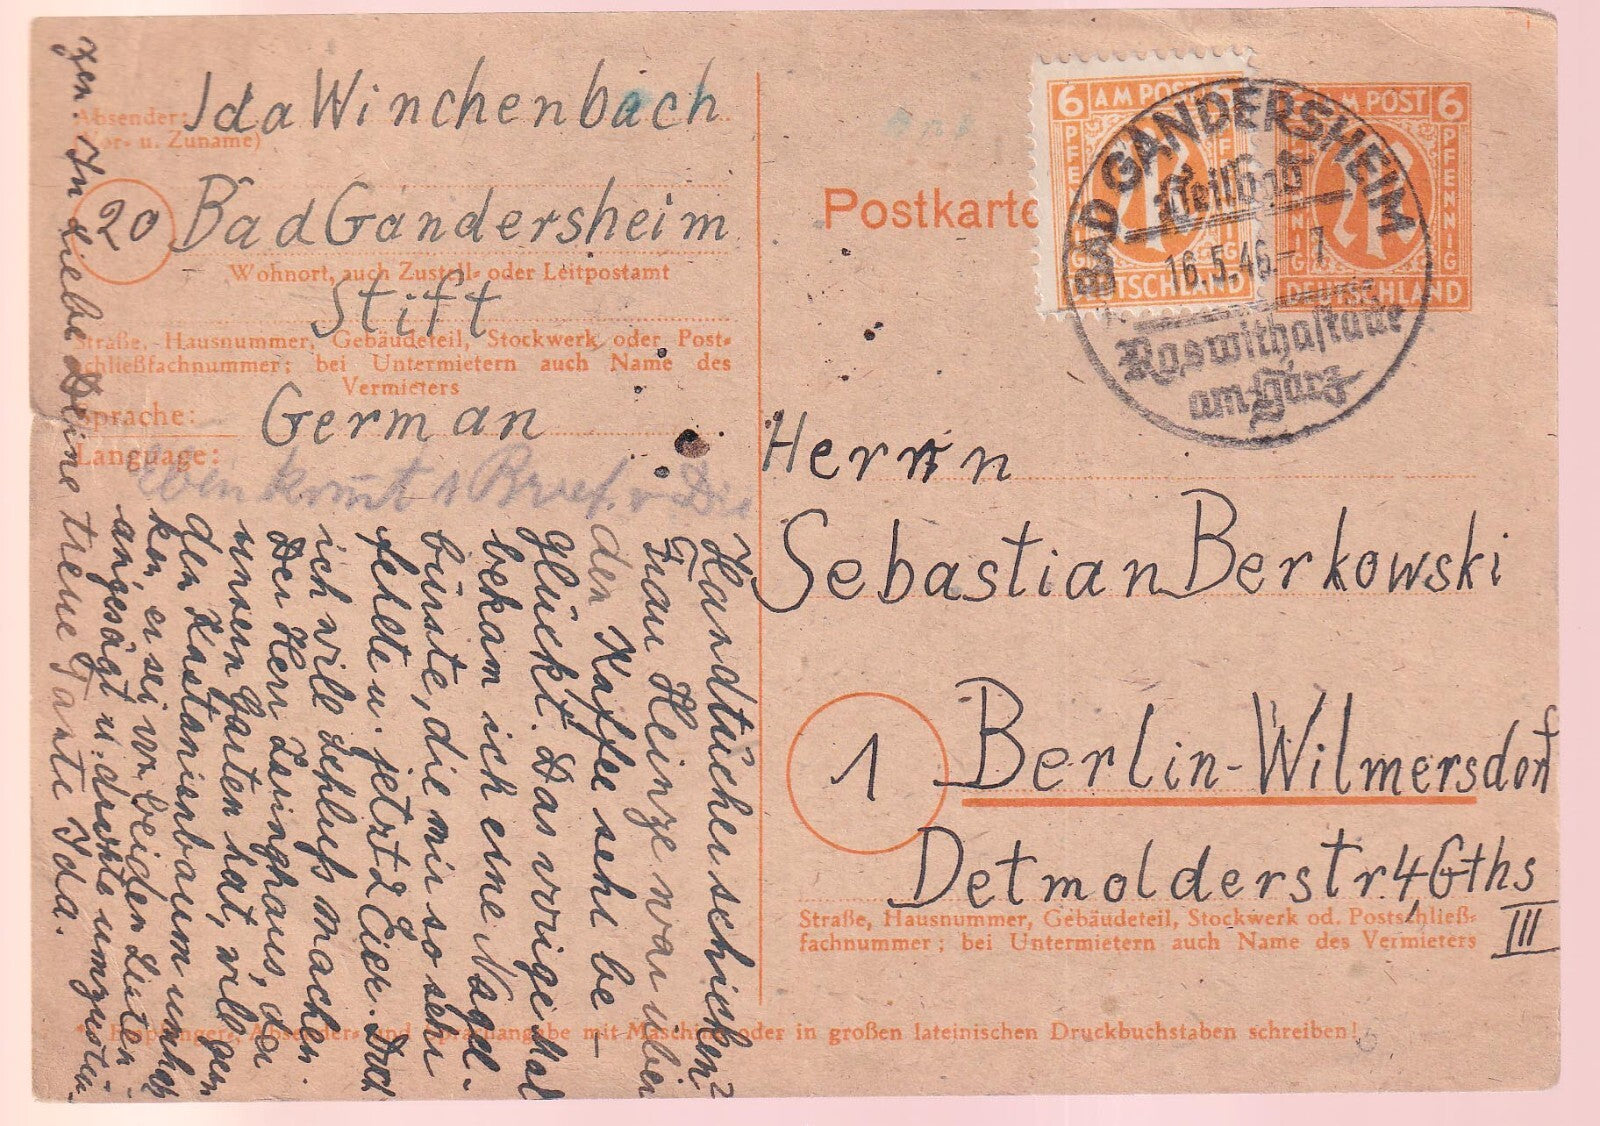 Absender: Ida Winchenbach
(Vor- u. Zuname)
20 Bad Gandersheim
Wohnort, auch Zustell- oder Leitpostamt
Stift
Straße, Hausnummer, Gebäudeteil, Stockwerk oder Post-
schließfachnummer; bei Untermietern auch Name des
Vermieters
Sprache: German
Language:
eben kommt 1 Brief v. Dir
Handtücher schicken?
Frau Heinze war über
den Kaffee sehr be-
glückt. Das vorige Mal
bekam ich eine Nagel-
bürste, die mir so sehr
fehlte u. jetzt 2 Eier. Doch
ich will Schluß machen.
Der Herr, der
unsern Garten hat, will gern
den Kastanienbaum umhak-
ken, er sei von beiden Seiten
angesägt u. drohte umzustür-
zen. In Liebe Deine treue Tante Ida.
Postkarte
6 AM POST 6
PFENNIG PFENNIG
DEUTSCHLAND
6 AM POST 6
PFENNIG PFENNIG
DEUTSCHLAND
BAD GANDERSHEIM
Heilbad
16.5.46.-7
Roswithastadt
am Harz
Herrn
Sebastian Berkowski
1 Berlin-Wilmersdorf
Detmolderstr. 4, Gths
III
Straße, Hausnummer, Gebäudeteil, Stockwerk od. Postschließ-
fachnummer; bei Untermietern auch Name des Vermieters
* Empfänger-, Absender- und Sprachangabe mit Maschine oder in großen lateinischen Druckbuchstaben schreiben!